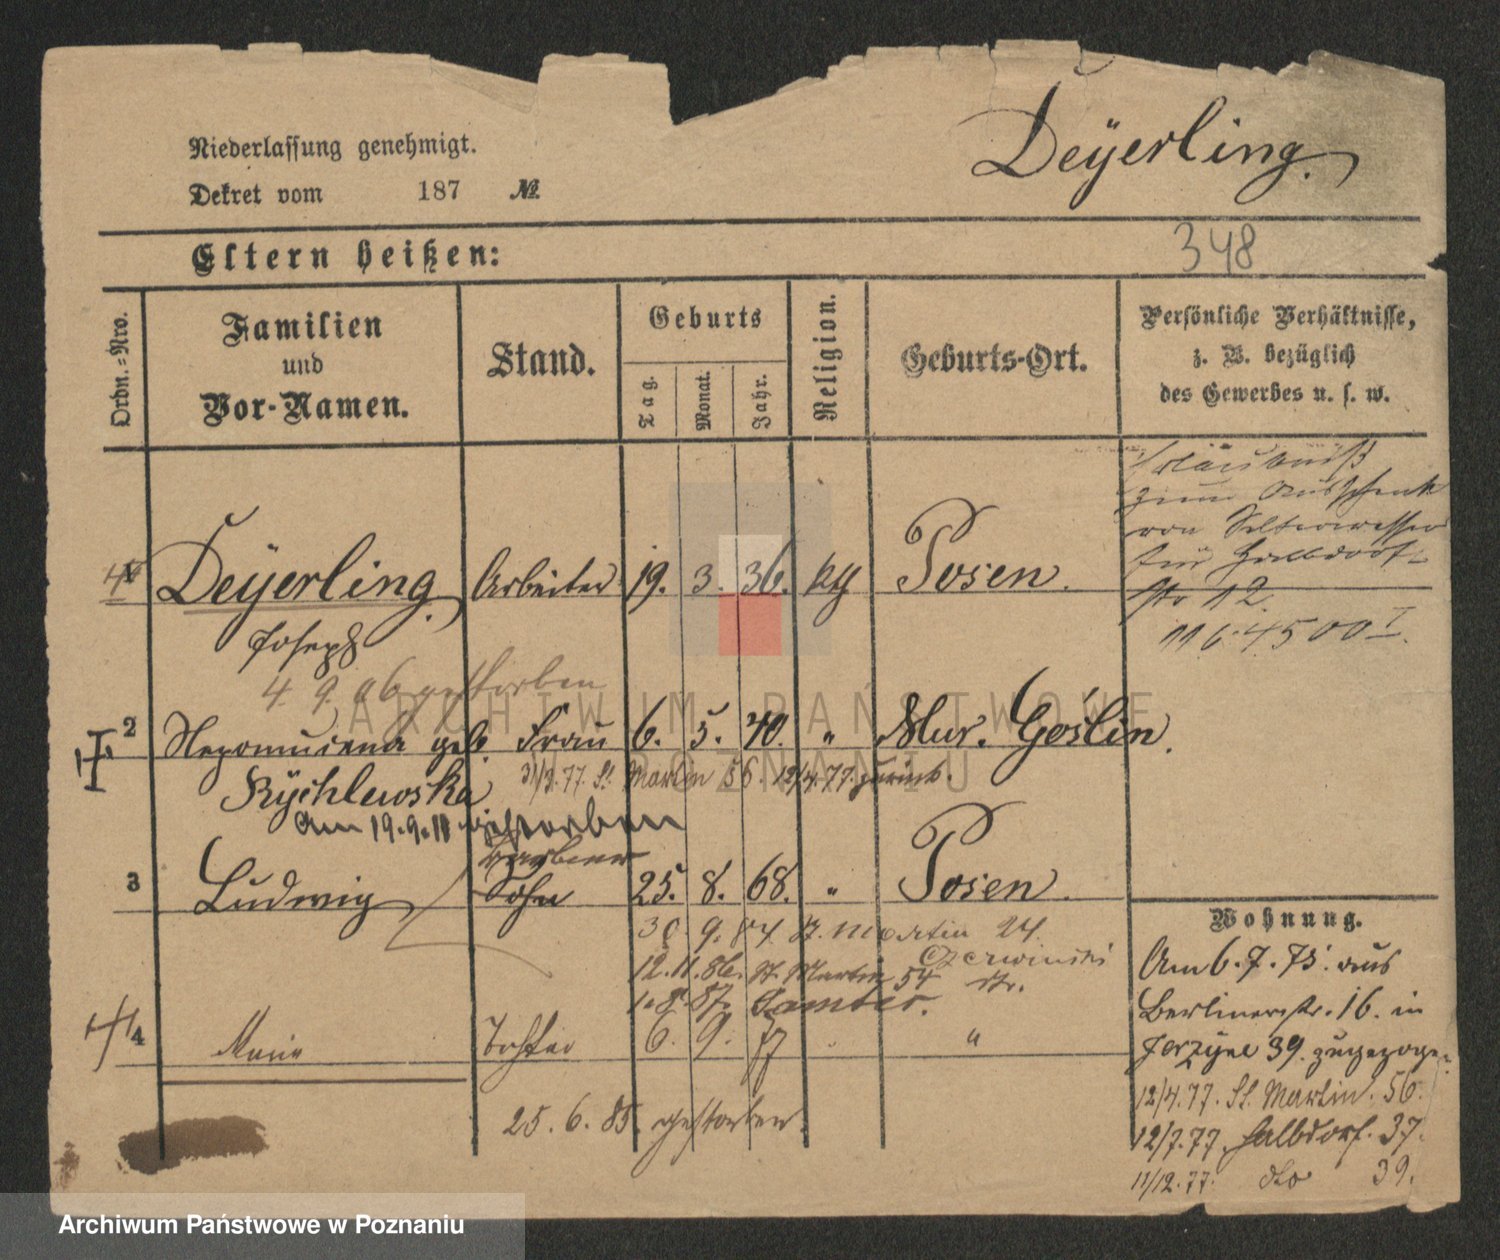 Niederlassung genehmigt.
Dekret vom 187 №
Deÿerling.
348
Eltern heißen:
Ordn.-Nro.
Familien
und
Vor-Namen.
Stand.
Geburts
Tag.
Monat.
Jahr.
Religion.
Geburts-Ort.
Persönliche Verhältnisse,
z. B. bezüglich
des Gewerbes u. s. w.
Erlaubniß
zum Ausschank
von Selterwasser
für Halbdorf-
str 12.
Deÿerling. Arbeiter 19. 3. 36. kth Posen.
Joseph
4. 9. abgestorben
2 Nepomucena geb. Frau 6. 5. 40. " Mur. Goslin.
Rÿchlewska 31/3.77. St. Martin 56. 12/4.77. zurück.
Am 19.9.11 gestorben
3 Ludwig Sohn 25. 8. 68. " Posen.
30 9. 84 St. Martin 24.
Czerwinski
12.11.86. St. Martin 54 str.
1.8.87. Samter.
4 Marie Tochter 6. 9. 77 "
25. 6. 85. gestorben.
Wohnung.
Am 6. 7. 75. aus
Berlinerstr. 16. in
Jerzyce 39. zugezogen
12/4.77. St. Martin. 56.
12/7.77. Halbdorf. 37.
11/12.77. dto 39.
ARCHIWUM PAŃSTWOWE
W POZNANIU
Archiwum Państwowe w Poznaniu